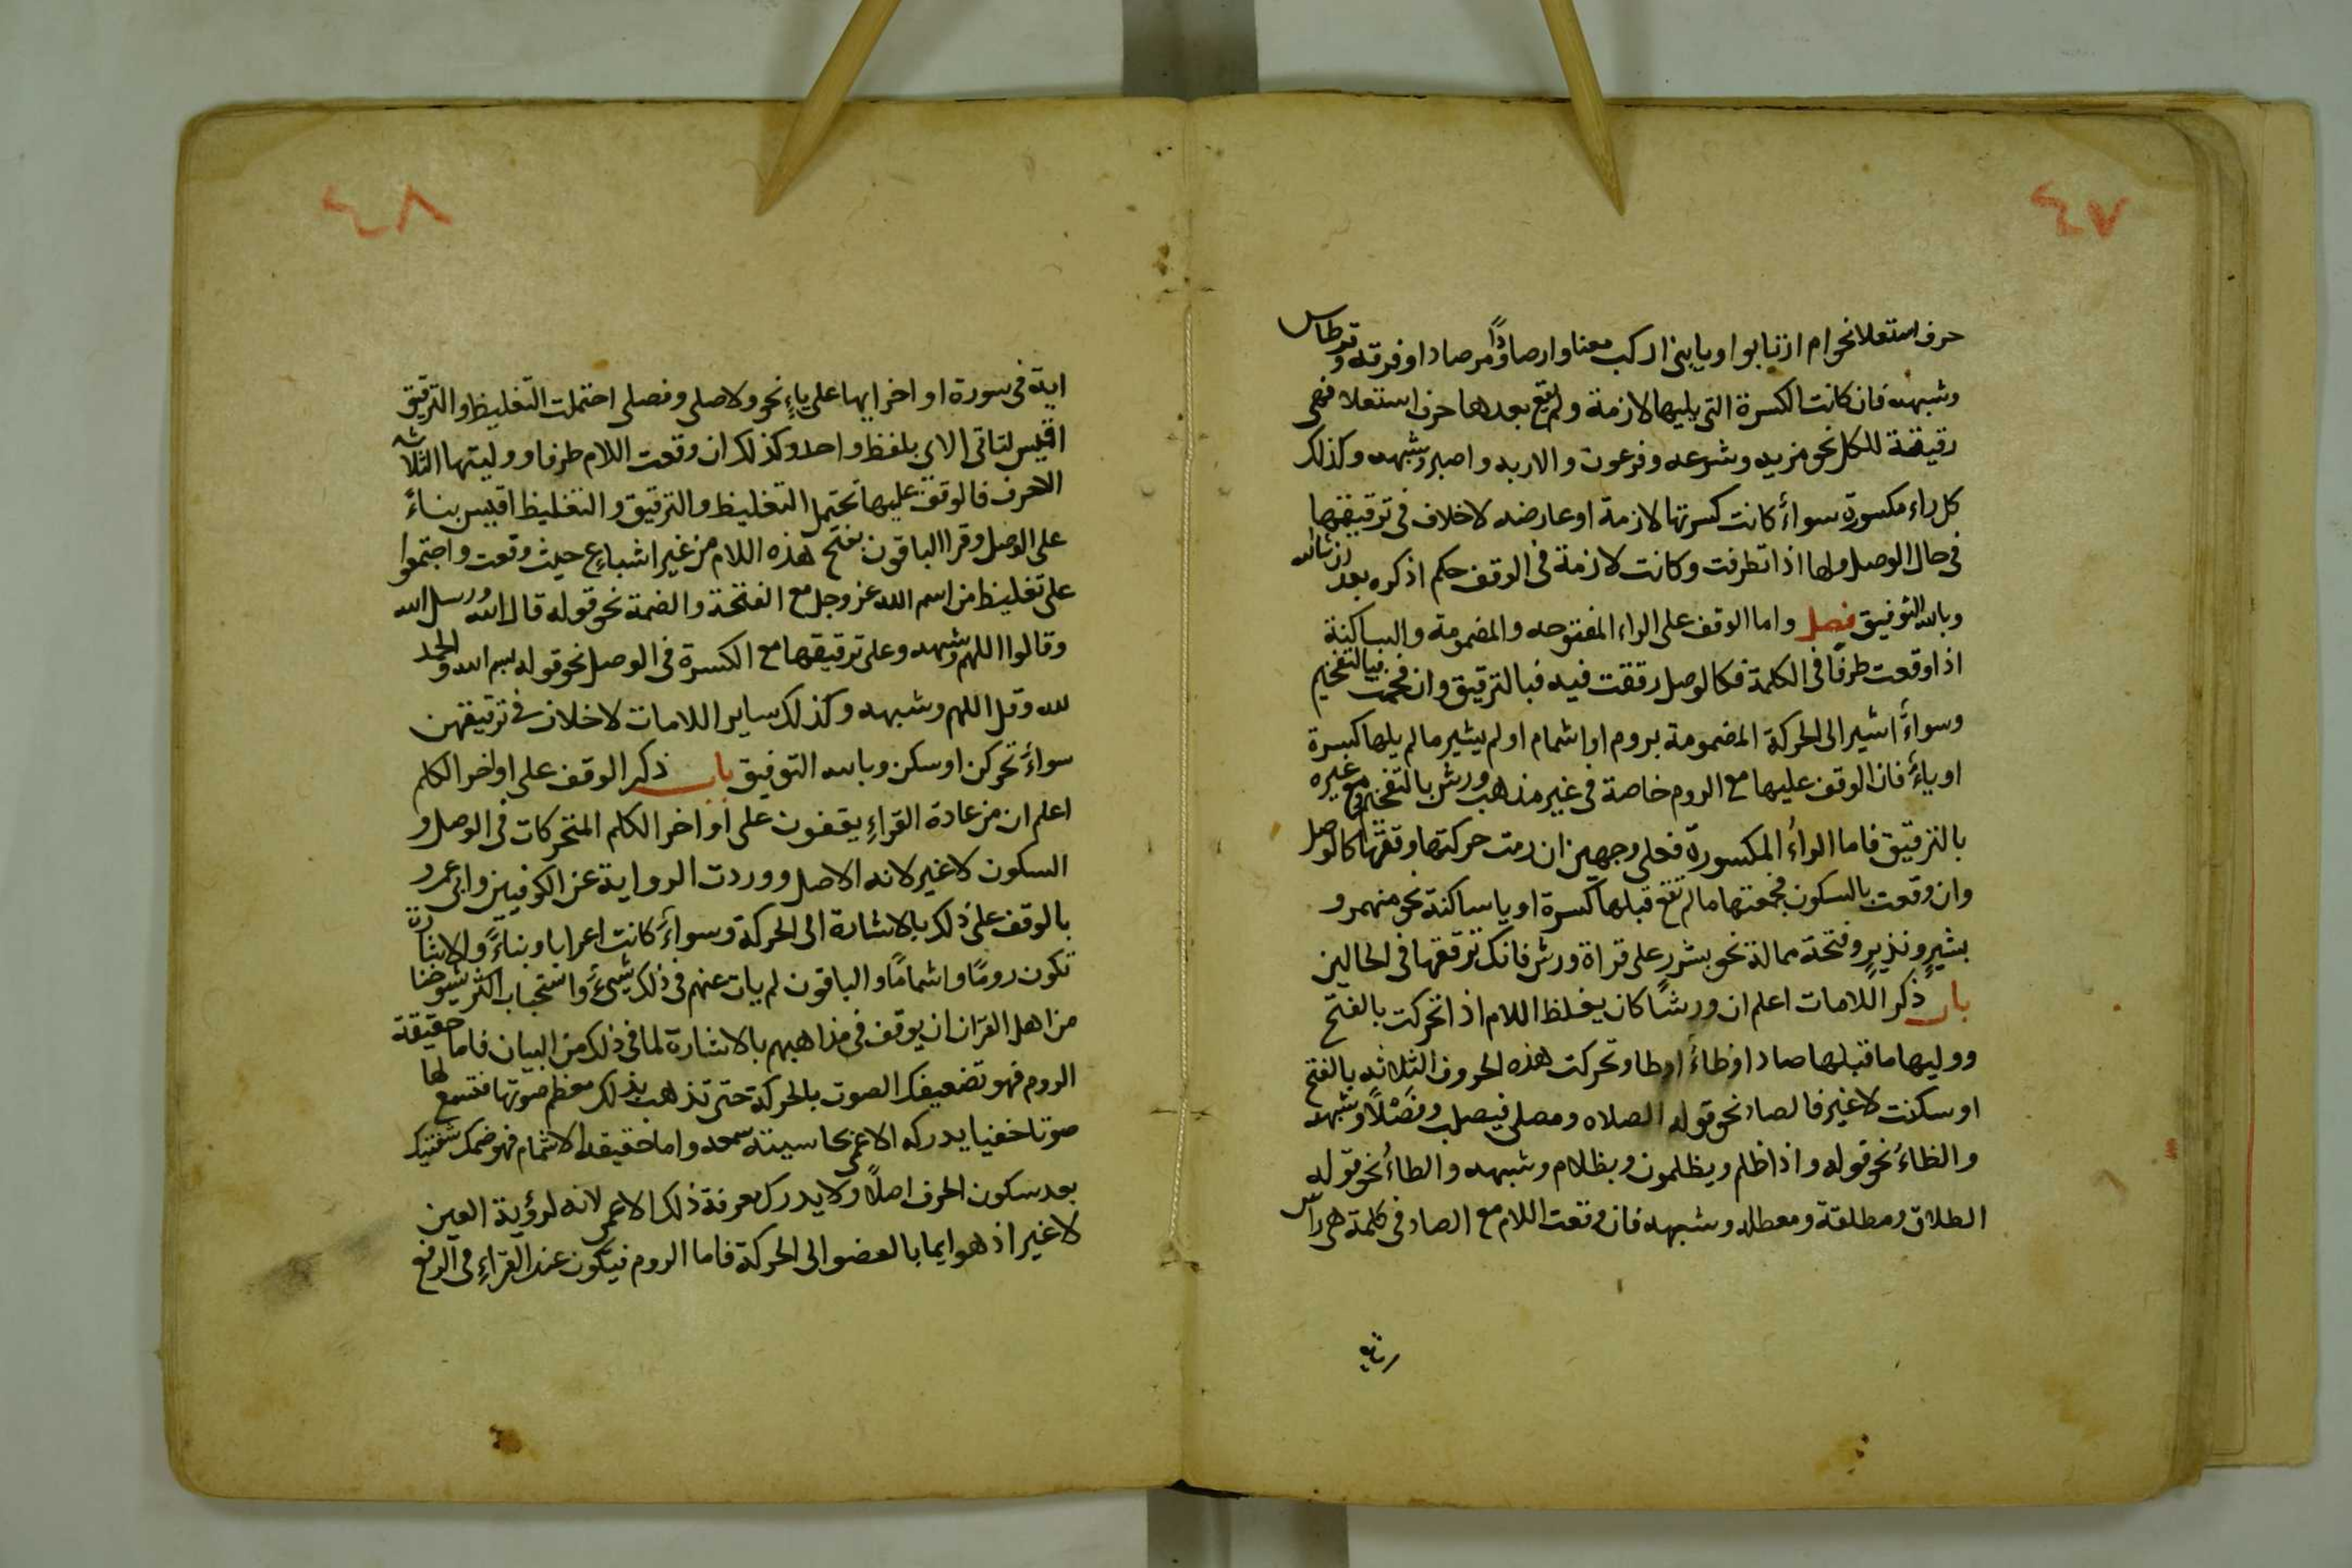 ٤٧
حرف استعلا نحو ام ارتابوا ويابنى اركب معنا وارصادًا ومرصادا وفرقة وقرطاس
وشبهه فان كانت الكسرة التى يليها لازمة ولم يقع بعدها حرف استعلا فهى
رقيقة للكل نحو مرية وشرعه وفرعون والاربه واصبر وشبهه وكذلك
كل راء مكسورة سواءً كانت كسرتها لازمة او عارضه لا خلاف فى ترقيقها
فى حال الوصل ولها اذا تطرفت وكانت لازمة فى الوقف حكم اذكره بعد ان شا الله
وبالله التوفيق فصل واما الوقف على الراء المفتوحه والمضمومة والساكنة
اذا وقعت طرفًا فى الكلمة فكالوصل رققت فيه فبالترقيق وان فخمت فبالتفخيم
وسواءً اشير الى الحركة المضمومة بروم او اشمام او لم يشير ما لم يلها كسرة
او ياءً فان الوقف عليها مع الروم خاصة فى غير مذهب ورش بالتفخيم ومع غيره
بالترقيق فاما الراءُ المكسورة فعلى وجهين ان رمت حركتها رققتها كالوصل
وان وقعت بالسكون فخمتها ما لم تقع قبلها كسرة او يا ساكنة نحو منهمر و
بشيرٍ ونذيرٍ وفتحة ممالة نحو بشرر على قراة ورش فانك ترققها فى الحالين
باب ذكر اللامات اعلم ان ورشًا كان يغلظ اللام اذا تحركت بالفتح
ووليها ما قبلها صاد او ظاءً او طا وتحركت هذه الحروف الثلاثه بالفتح
او سكنت لا غير فالصاد نحو قوله الصلاه ومصلى فيصلب وفَصْلًا وشبهه
والظاءُ نحو قوله واذا ظلم ويظلمون وبظلام وشبهه والطاءُ نحو قوله
الطلاق ومطلقة ومعطله وشبهه فان وقعت اللام مع الصاد فى كلمة هى راس
٤٨
اية فى سورة او اخر ايها على ياءٍ نحو ولا صلى وفصلى احتملت التغليظ والترقيق
اقيس لتاتى الاى بلفظ واحد وكذلك ان وقعت اللام طرفا ووليتها الثلاثه
الاحرف فالوقف عليها تحتمل التغليظ والترقيق والتغليظ اقيس بناءً
على الوصل وقرا الباقون بفتح هذه اللام من غير اشباعٍ حيث وقعت واجتمعوا
على تغليظ من اسم الله عز وجل مع الفتحة والضمة نحو قوله قال اللهُ ورسل الله
وقالوا اللهم وشبهه وعلى ترقيقها مع الكسرة فى الوصل نحو قوله بسم الله والحمد
لله وقل اللهم وشبهه وكذلك ساير اللامات لا خلاف فى ترقيقهن
سواءً تحركن او سكن وبالله التوفيق باب ذكر الوقف على اواخر الكلم
اعلم ان من عادة القراءِ يقفون على اواخر الكلم المتحركات فى الوصل و
السكون لا غير لانه الاصل ووردت الرواية عن الكوفيين وابى عمرو
بالوقف على ذلك بالاشارة الى الحركة وسواءً كانت اعرابا وبناءً والاشارة
تكون رومًا واشمامًا والباقون لم يات عنهم فى ذلك شىءٌ واستحباب اكثر شيوخنا
من اهل القران ان يوقف فى مذاهبهم بالاشارة لما فى ذلك من البيان فاما حقيقة
الروم فهو تضعيفك الصوت بالحركة حتى تذهب بذلك معظم صوتها فتسمع لها
صوتا خفيا يدركه الاعمى بحاسيتة سمعه واما حقيقة الاشمام فهو ضمك شفتيك
بعد سكون الحرف اصلًا ولا يدرك معرفة ذلك الاعمى لانه لرؤية العين
لا غير اذ هو ايما بالعضو الى الحركة فاما الروم فيكون عند القراءِ فى الرفع